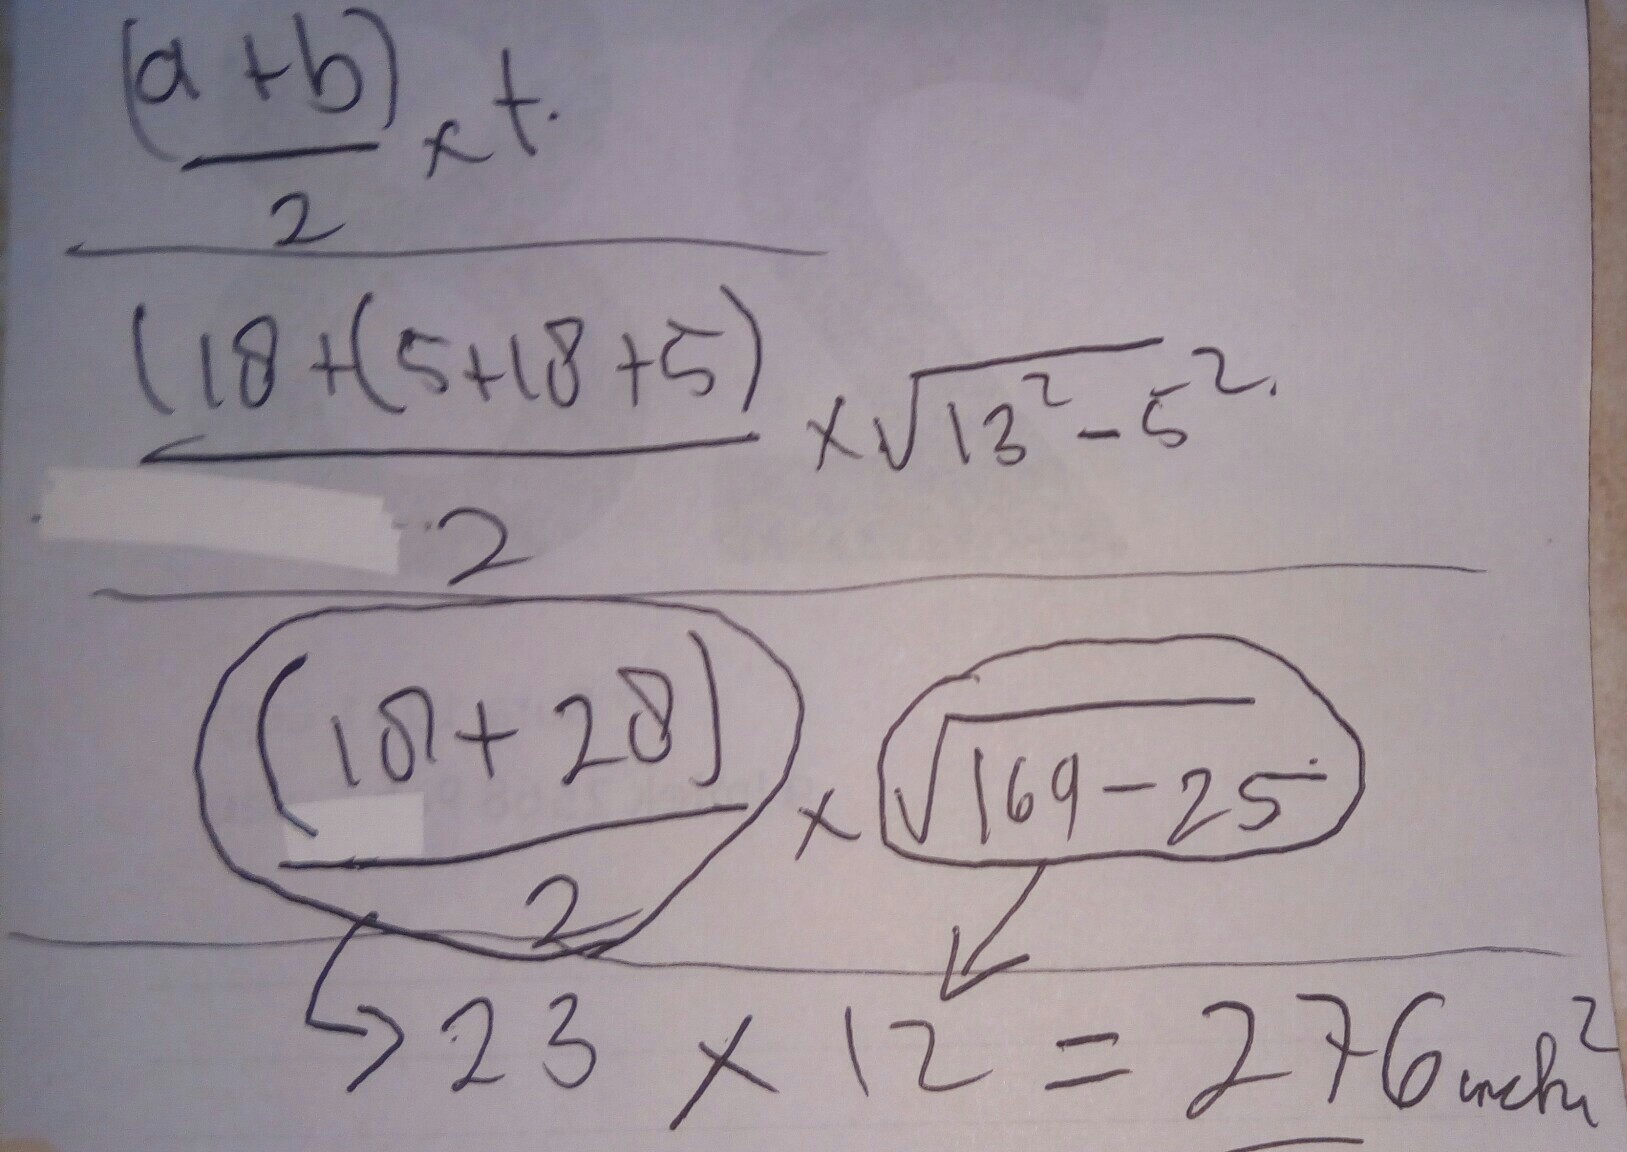 (a + b)
× t.
2
(18 + (5+18+5)
× √13² - 5².
2
(18 + 28)
× √169 - 25
2
23 × 12 = 276 inchi²